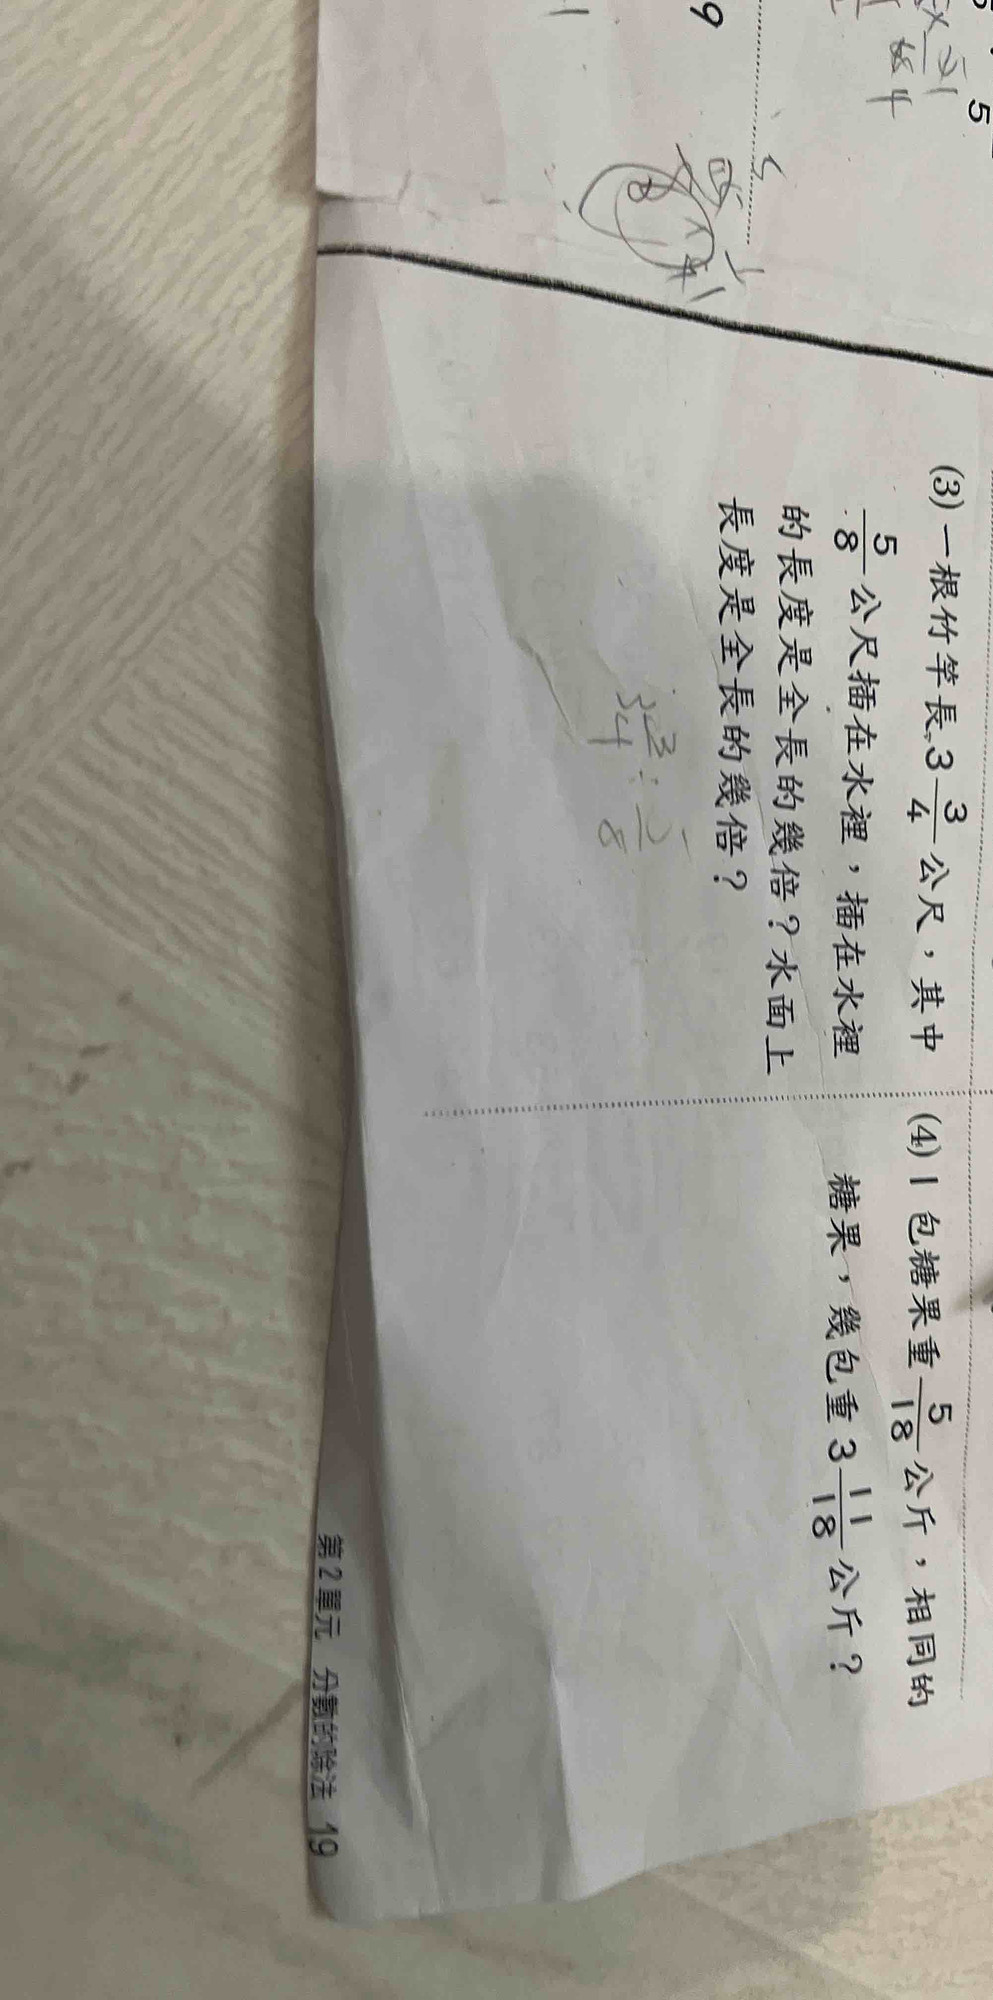 5
9
(3) 一根竹竿長 3 3/4 公尺，其中
5/8 公尺插在水裡，插在水裡
的長度是全長的幾倍？水面上
長度是全長的幾倍？
3 3/4 ÷
(4) 1 包糖果重 5/18 公斤，相同的
糖果，幾包重 3 11/18 公斤？
第2單元 分數的除法 19